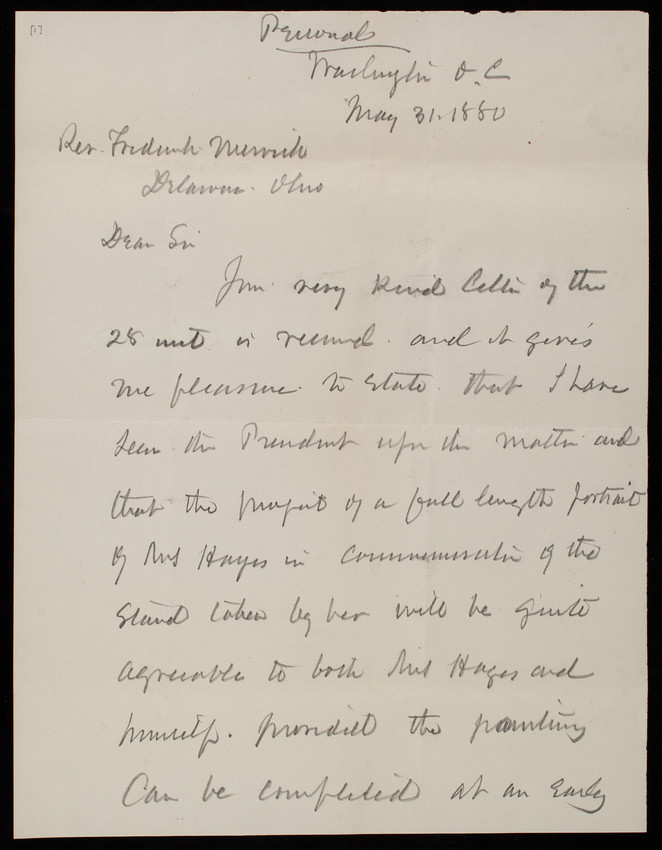 [1]
Personal
Washington D.C
May 31. 1880
Rev. Frederick Merrick
Delaware. Ohio
Dear Sir
Your very kind letter of the
28 inst is received. and it gives
me pleasure. to state. that I have
seen the President upon the matter and
that the project of a full length portrait
of Mrs Hayes in commemoration of the
stand taken by her will be quite
agreeable to both Mrs Hayes and
himself. provided the painting
can be completed at an early